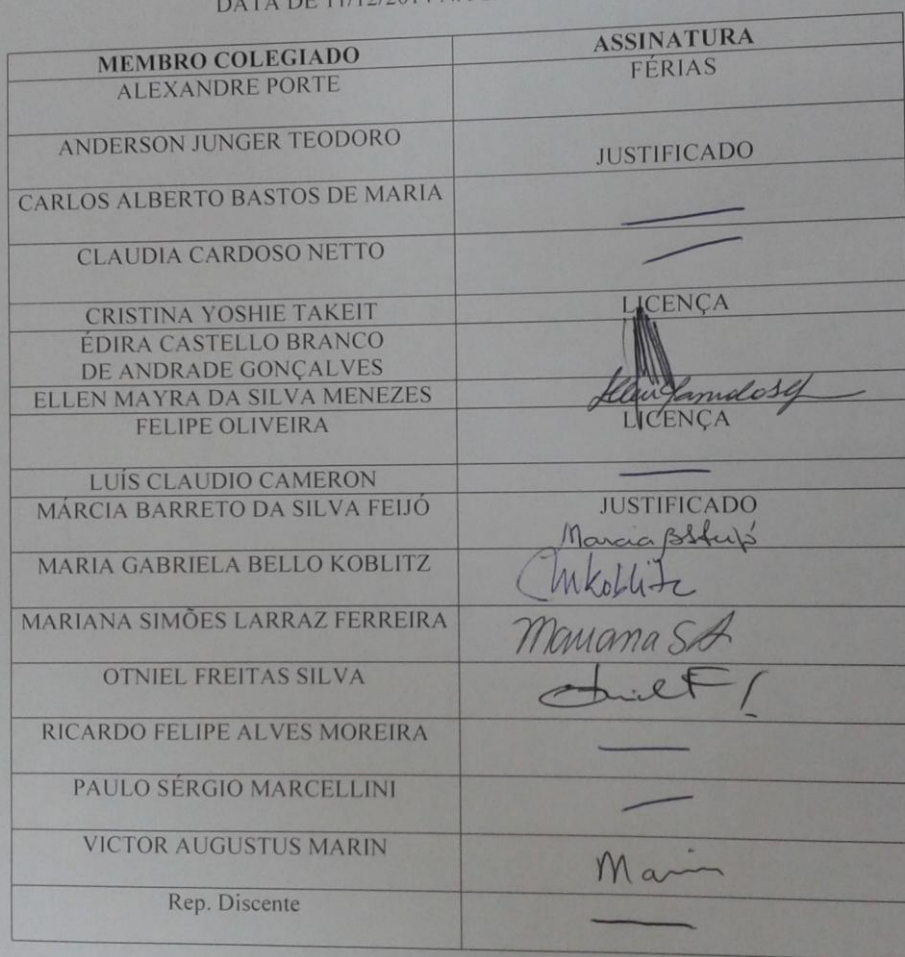 DATA DE 11/12/2014
MEMBRO COLEGIADO ASSINATURA
ALEXANDRE PORTE FÉRIAS
ANDERSON JUNGER TEODORO JUSTIFICADO
CARLOS ALBERTO BASTOS DE MARIA
CLAUDIA CARDOSO NETTO
CRISTINA YOSHIE TAKEIT LICENÇA
ÉDIRA CASTELLO BRANCO
DE ANDRADE GONÇALVES
ELLEN MAYRA DA SILVA MENEZES
FELIPE OLIVEIRA LICENÇA
LUÍS CLAUDIO CAMERON
MÁRCIA BARRETO DA SILVA FEIJÓ JUSTIFICADO
Marcia
MARIA GABRIELA BELLO KOBLITZ Mkoblitz
MARIANA SIMÕES LARRAZ FERREIRA Mariana
OTNIEL FREITAS SILVA
RICARDO FELIPE ALVES MOREIRA
PAULO SÉRGIO MARCELLINI
VICTOR AUGUSTUS MARIN Marin
Rep. Discente